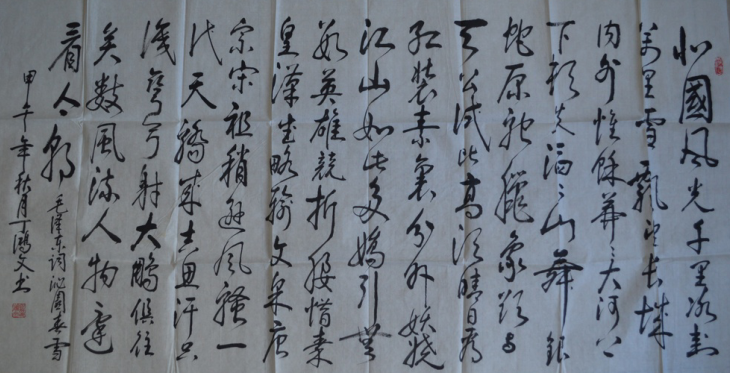 北國风光千里冰封
萬里雪飄望长城
内外惟餘莽〻大河上
下顿失滔〻山舞银
蛇原驰臘象欲与
天公试比高须晴日看
红装素裹分外妖娆
江山如此多嬌引無
数英雄競折腰惜秦
皇漢武略输文采唐
宗宋祖稍逊风骚一
代天驕成吉思汗只
识弯弓射大鵰俱往
矣數風流人物還
看今朝
毛泽东词沁園春雪
甲午年秋月丁鸿文书